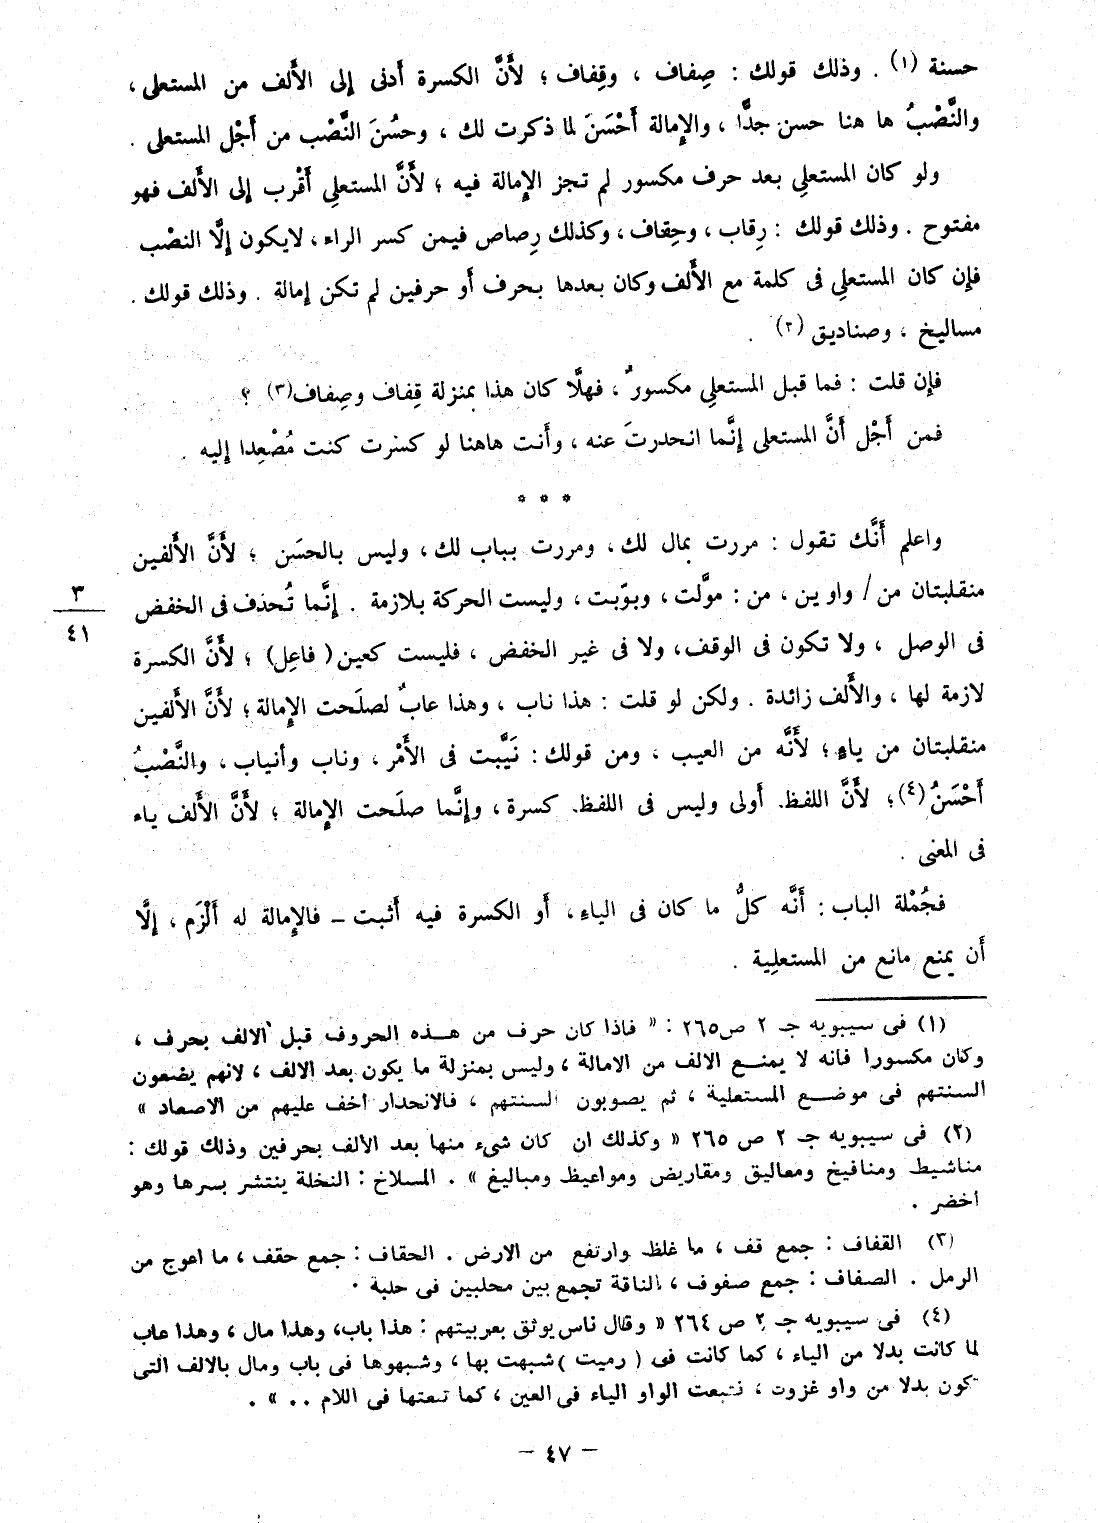 حسنة (١) . وذلك قولك : صِفاف ، وقِفاف ؛ لأَنَّ الكسرة أَدنى إلى الأَلف من المستعلى ،
والنَّصْبُ ها هنا حسن جدًّا ، والإمالة أَحْسَنَ لما ذكرت لك ، وحسُنَ النَّصْب من أَجْل المستعلى .
ولو كان المستعلِي بعد حرف مكسور لم تجز الإمالة فيه ؛ لأَنَّ المستعلِي أَقْرب إلى الأَلف فهو
مفتوح . وذلك قولك : رِقاب ، وحِقاف ، وكذلك رِصاص فيمن كسر الراء ، لايكون إلَّا النصْب
فإن كان المستعلِي فى كلمة مع الأَلف وكان بعدها بحرف أَو حرفين لم تكن إمالة . وذلك قولك .
مساليخ ، وصناديق (٢) .
فإن قلت : فما قبل المستعلِي مكسورٌ ، فهلَّا كان هذا بمنزلة قِفاف وصِفاف(٣) ؟
فمن أَجْل أَنَّ المستعلى إنَّما انحدرتَ عنه ، وأَنت هاهنا لو كسرت كنت مُصْعِدا إليه .
* * *
واعلم أَنَّك تقول : مررت بمال لك ، ومررت بباب لك ، وليس بالحسَن ؛ لأَنَّ الأَلفين
منقلبتان من / واوين ، من : موّلت ، وبوّبت ، وليست الحركة بلازمة . إنَّما تُحذف فى الخفض
٣
٤١
فى الوصل ، ولا تكون فى الوقف، ولا فى غير الخفض ، فليست كعين ( فاعِل) ؛ لأَنَّ الكسرة
لازمة لها ، والأَلف زائدة . ولكن لو قلت : هذا ناب ، وهذا عابٌ لصلَحت الإمالة ؛ لأَنَّ الأَلفين
منقلبتان من ياءٍ ؛ لأَنَّه من العيب ، ومن قولك : نَيَّبت فى الأَمْر ، وناب وأنياب ، والنَّصْبُ
أَحْسَنُ (٤)؛ لأَنَّ اللفظ أَولى وليس فى اللفظ كسرة ، وإنَّما صلَحت الإمالة ؛ لأَنَّ الأَلف ياء
فى المعنى .
فجُمْلة الباب : أَنَّه كلُّ ما كان فى الياءِ ، أَو الكسرة فيه أَثبت – فالإمالة له أَلْزَم ، إلَّا
أَن يمنع مانع من المستعلِية .
(١) فى سيبويه جـ ٢ ص٢٦٥ : « فاذا كان حرف من هـذه الحروف قبل الالف بحرف ،
وكان مكسورا فانه لا يمنـع الالف من الامالة ، وليس بمنزلة ما يكون بعد الالف ، لانهم يضعون
السنتهم فى موضـع المستعلية ، ثم يصوبون السنتهم ، فالانحدار أخف عليهم من الاصعاد »
(٢) فى سيبويه جـ ٢ ص ٢٦٥ « وكذلك ان كان شىء منها بعد الألف بحرفين وذلك قولك :
مناشيط ومنافيخ ومعاليق ومقاريض ومواعيظ ومباليغ » . المسلاخ : النخلة ينتشر بسرها وهو
أخضر .
(٣) القفاف : جمع قف ، ما غلظ وارتفع من الارض . الحقاف : جمع حقف ، ما اعوج من
الرمل . الصفاف : جمع صفوف ، الناقة تجمع بين محلبين فى حلبة .
(٤) فى سيبويه جـ ٢ ص ٢٦٤ « وقال ناس يوثق بعربيتهم : هذا باب، وهذا مال ، وهذا عاب
لما كانت بدلا من الياء ، كما كانت فى ( رميت ) شبهت بها ، وشبهوها فى باب ومال بالالف التى
تكون بدلا من واو غزوت ، فتبعت الواو الياء فى العين ، كما تبعتها فى اللام .. » .
– ٤٧ –